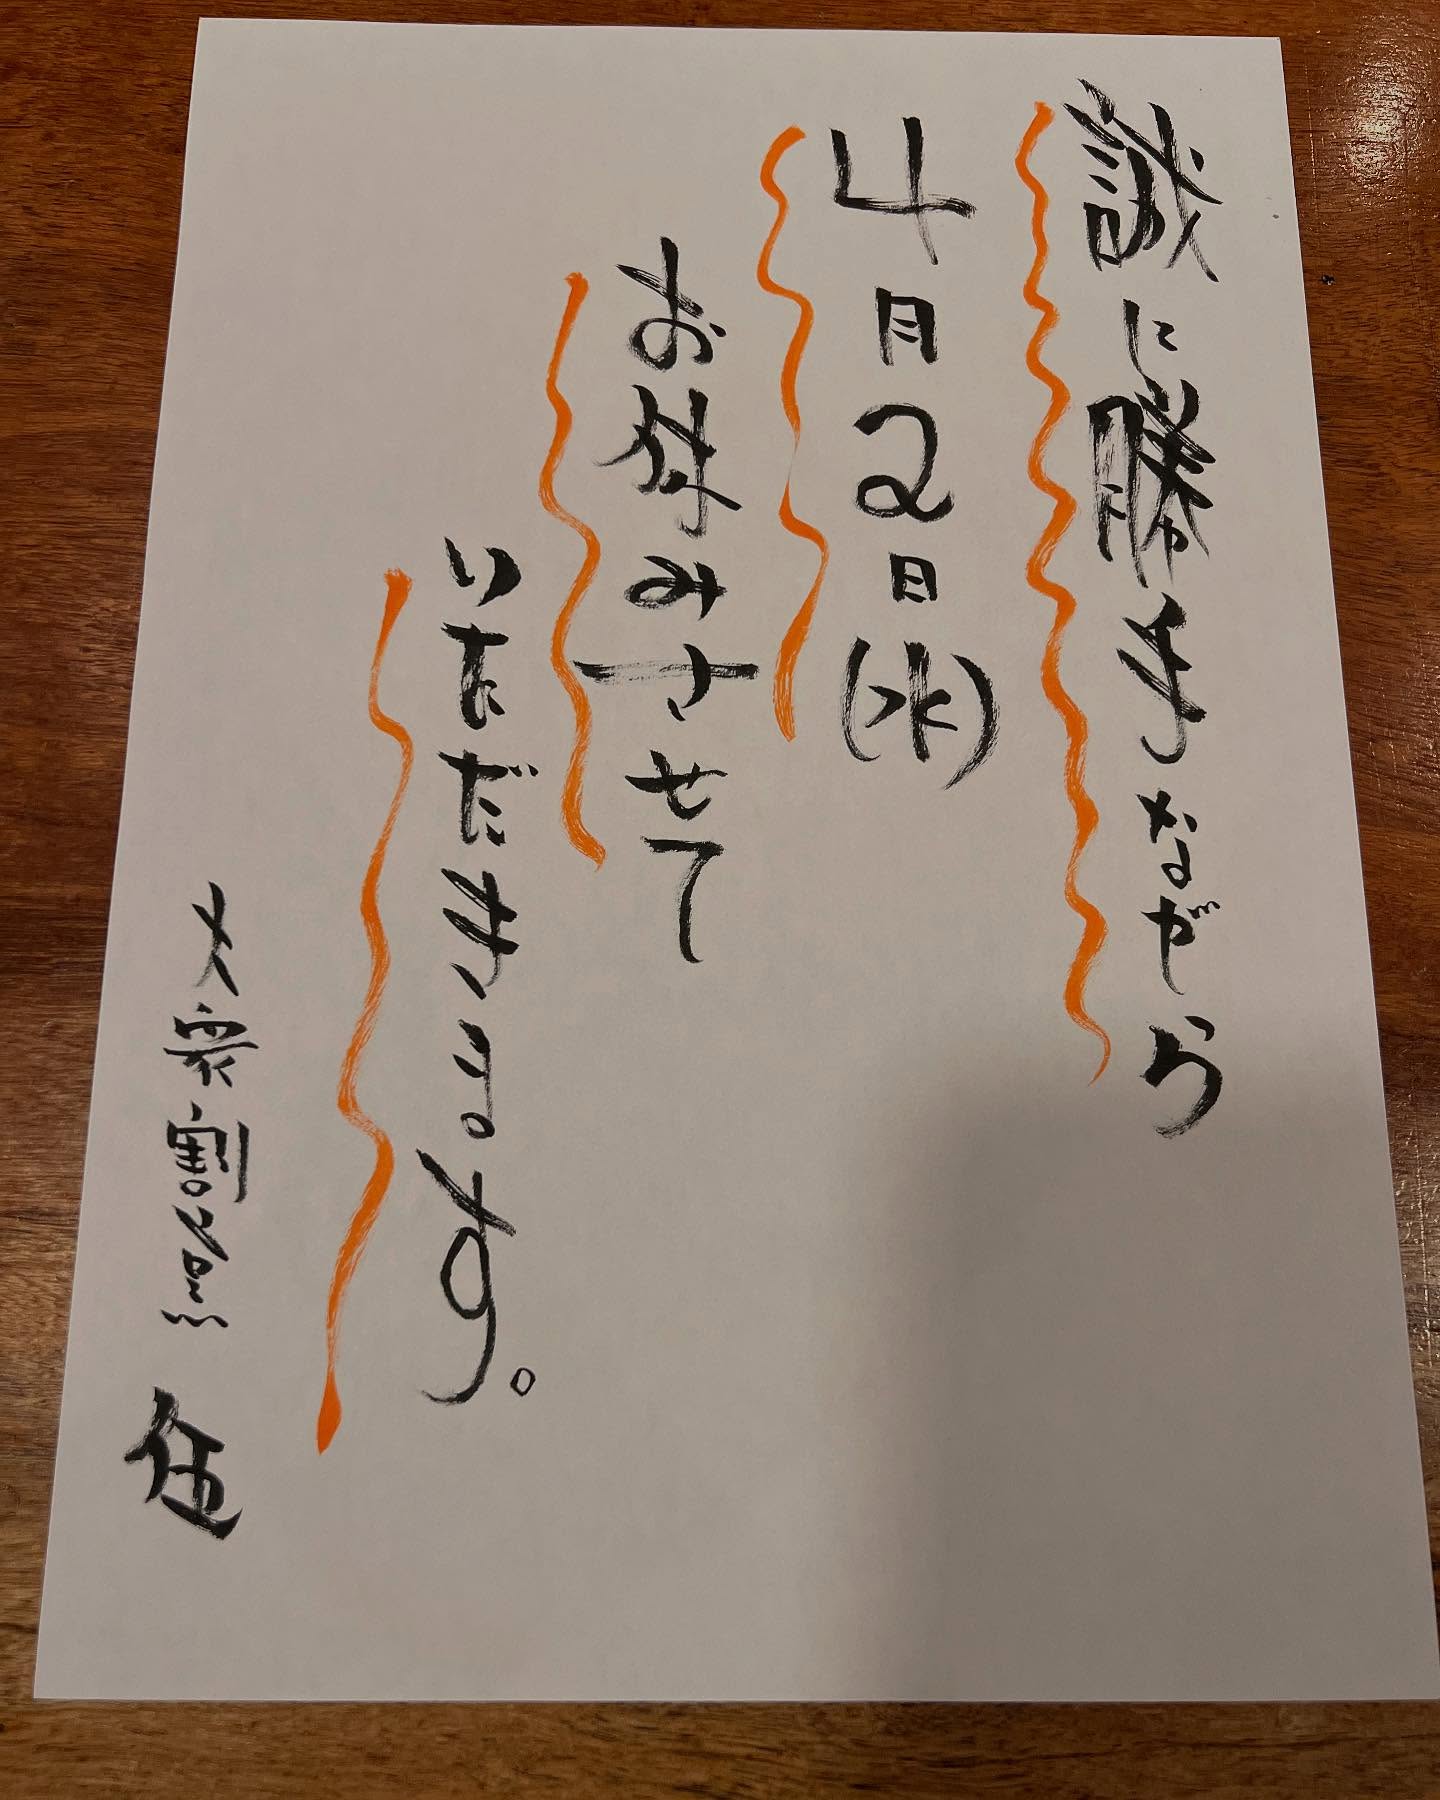 誠に勝手ながら
4月2日(水)
お休みさせて
いただきます。
大衆割烹 伍